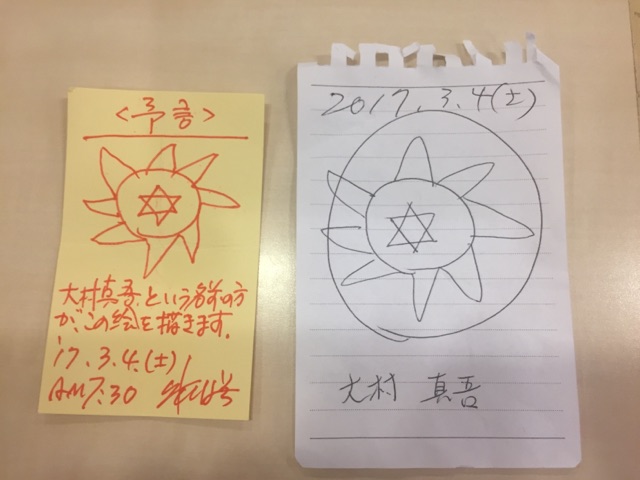 <予言>
大村真吾という名前の方
が、この絵を描きます.
17.3.4.(土)
AM7:30
2017.3.4(土)
大村 真吾